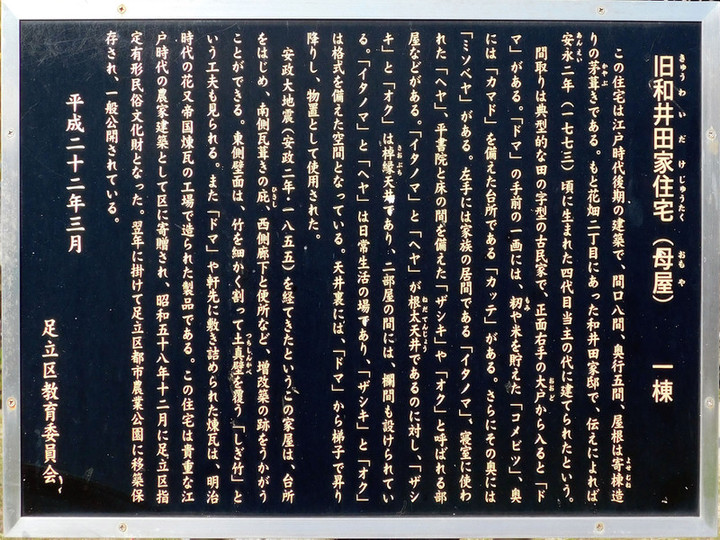 旧和井田家住宅（母屋）　一棟
きゅうわいだけじゅうたく　おもや
この住宅は江戸時代後期の建築で、間口八間、奥行五間、屋根は寄棟造
よせむね
りの茅葺きである。もと花畑二丁目にあった和井田家邸で、伝えによれば
かやぶ
安永二年（一七七三）頃に生まれた四代目当主の代に建てられたという。
あんえい
間取りは典型的な田の字型の古民家で、正面右手の大戸から入ると「ド
おおど
マ」がある。「ドマ」の手前の一画には、籾や米を貯えた「コメビツ」、奥
もみ
には「カマド」を備えた台所である「カッテ」がある。さらにその奥には
「ミソベヤ」がある。左手には家族の居間である「イタノマ」、寝室に使わ
れた「ヘヤ」、平書院と床の間を備えた「ザシキ」や「オク」と呼ばれる部
屋などがある。「イタノマ」と「ヘヤ」が根太天井であるのに対し、「ザシ
ねだてんじょう
キ」と「オク」は棹縁天井であり、二部屋の間には、欄間も設けられてい
さおぶち
る。「イタノマ」と「ヘヤ」は日常生活の場であり、「ザシキ」と「オク」
は格式を備えた空間となっている。天井裏には、「ドマ」から梯子で昇り
降りし、物置として使用された。
安政大地震（安政二年・一八五五）を経てきたというこの家屋は、台所
をはじめ、南側瓦葺きの庇、西側廊下と便所など、増改築の跡をうかがう
ひさし
ことができる。東側壁面は、竹を細かく割って土真壁を覆う「しぎ竹」と
つちしんかべ
いう工夫も見られる。また「ドマ」や軒先に敷き詰められた煉瓦は、明治
時代の花又帝国煉瓦の工場で造られた製品である。この住宅は貴重な江
戸時代の農家建築として区に寄贈され、昭和五十八年十二月に足立区指
定有形民俗文化財となった。翌年に掛けて足立区都市農業公園に移築保
存され、一般公開されている。
平成二十二年三月
足立区教育委員会